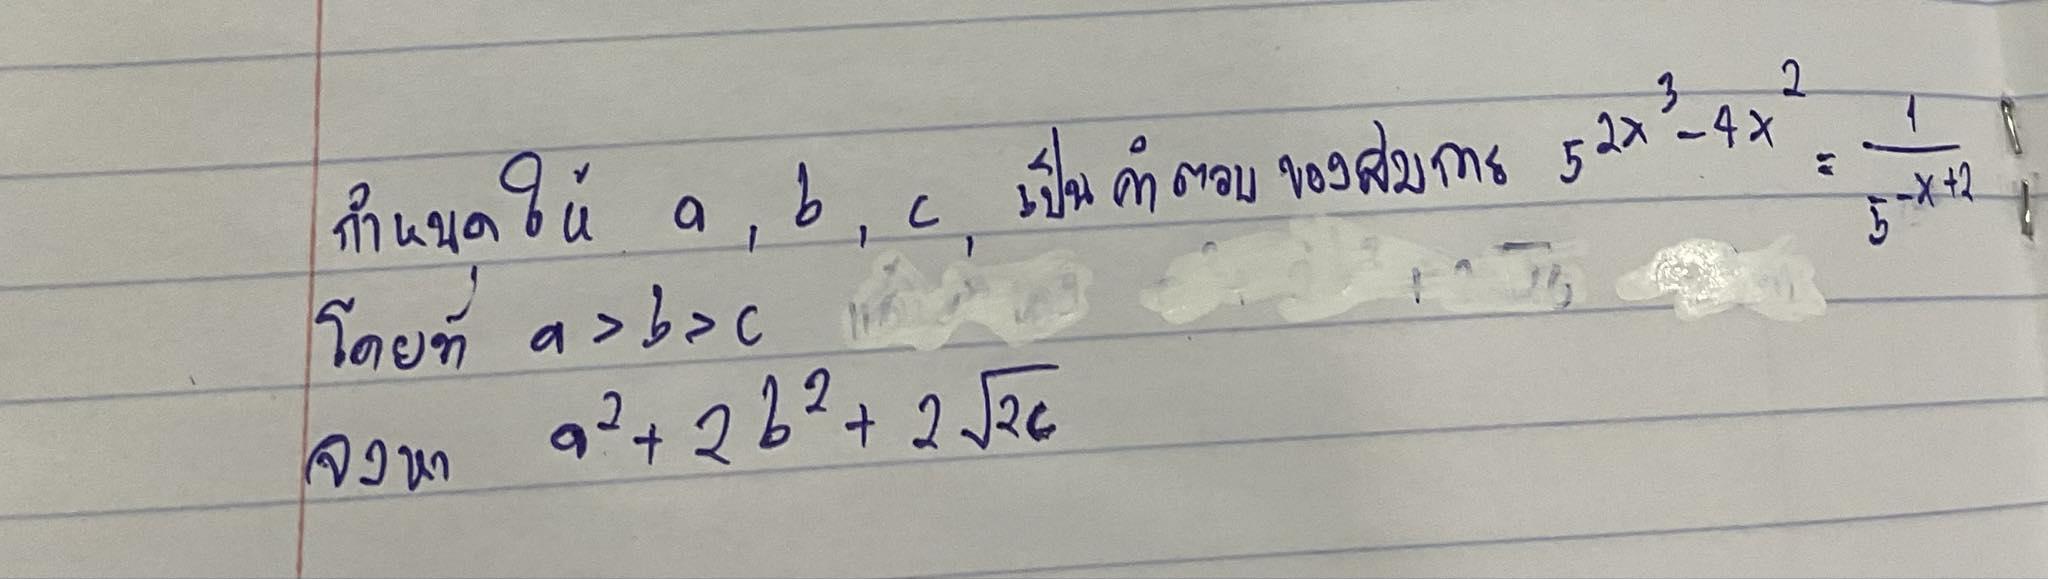 กำหนดให้ a, b, c, เป็นคำตอบของสมการ 5^{2x^3-4x^2} = \frac{1}{5^{-x+2}}
โดยที่ a > b > c
จงหา a² + 2b² + 2√2c